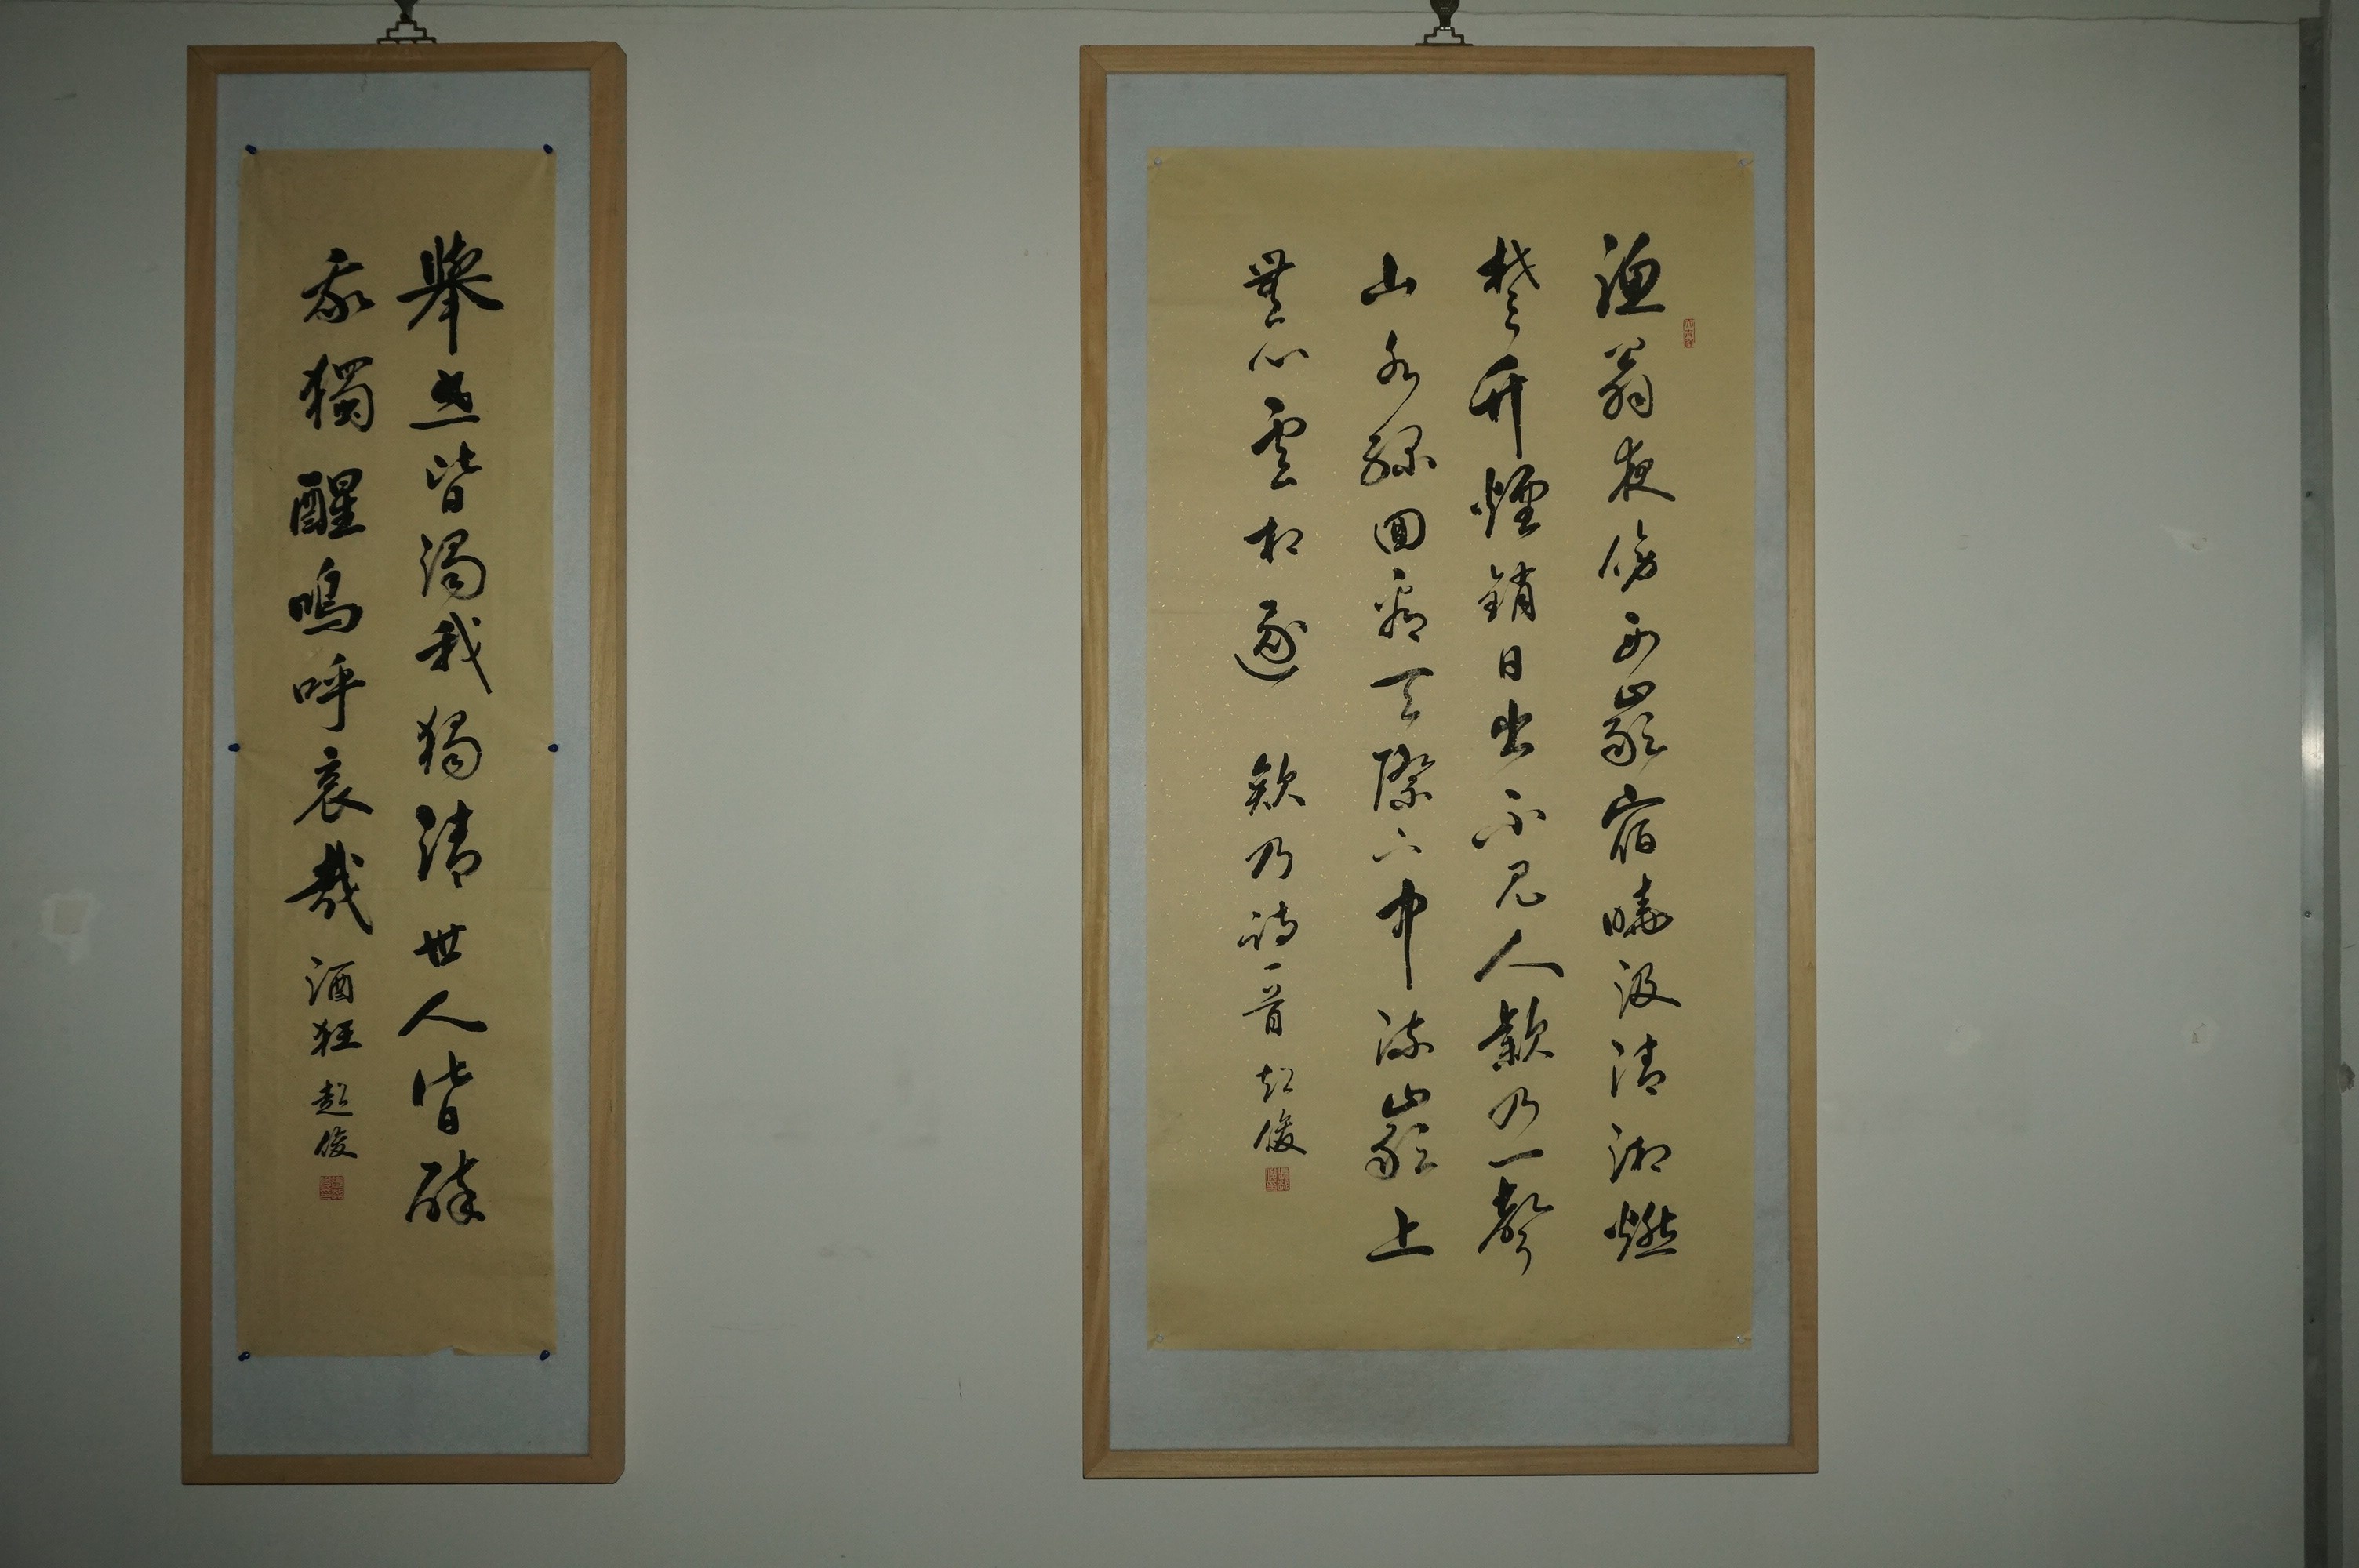 漁翁夜傍西巖宿曉汲清湘燃
楚竹煙銷日出不見人欸乃一聲
山水綠回看天際下中流巖上
無心雲相逐 欸乃詩一首 赵俊
舉世皆濁我獨清世人皆醉
我獨醒嗚呼哀哉 酒狂 赵俊